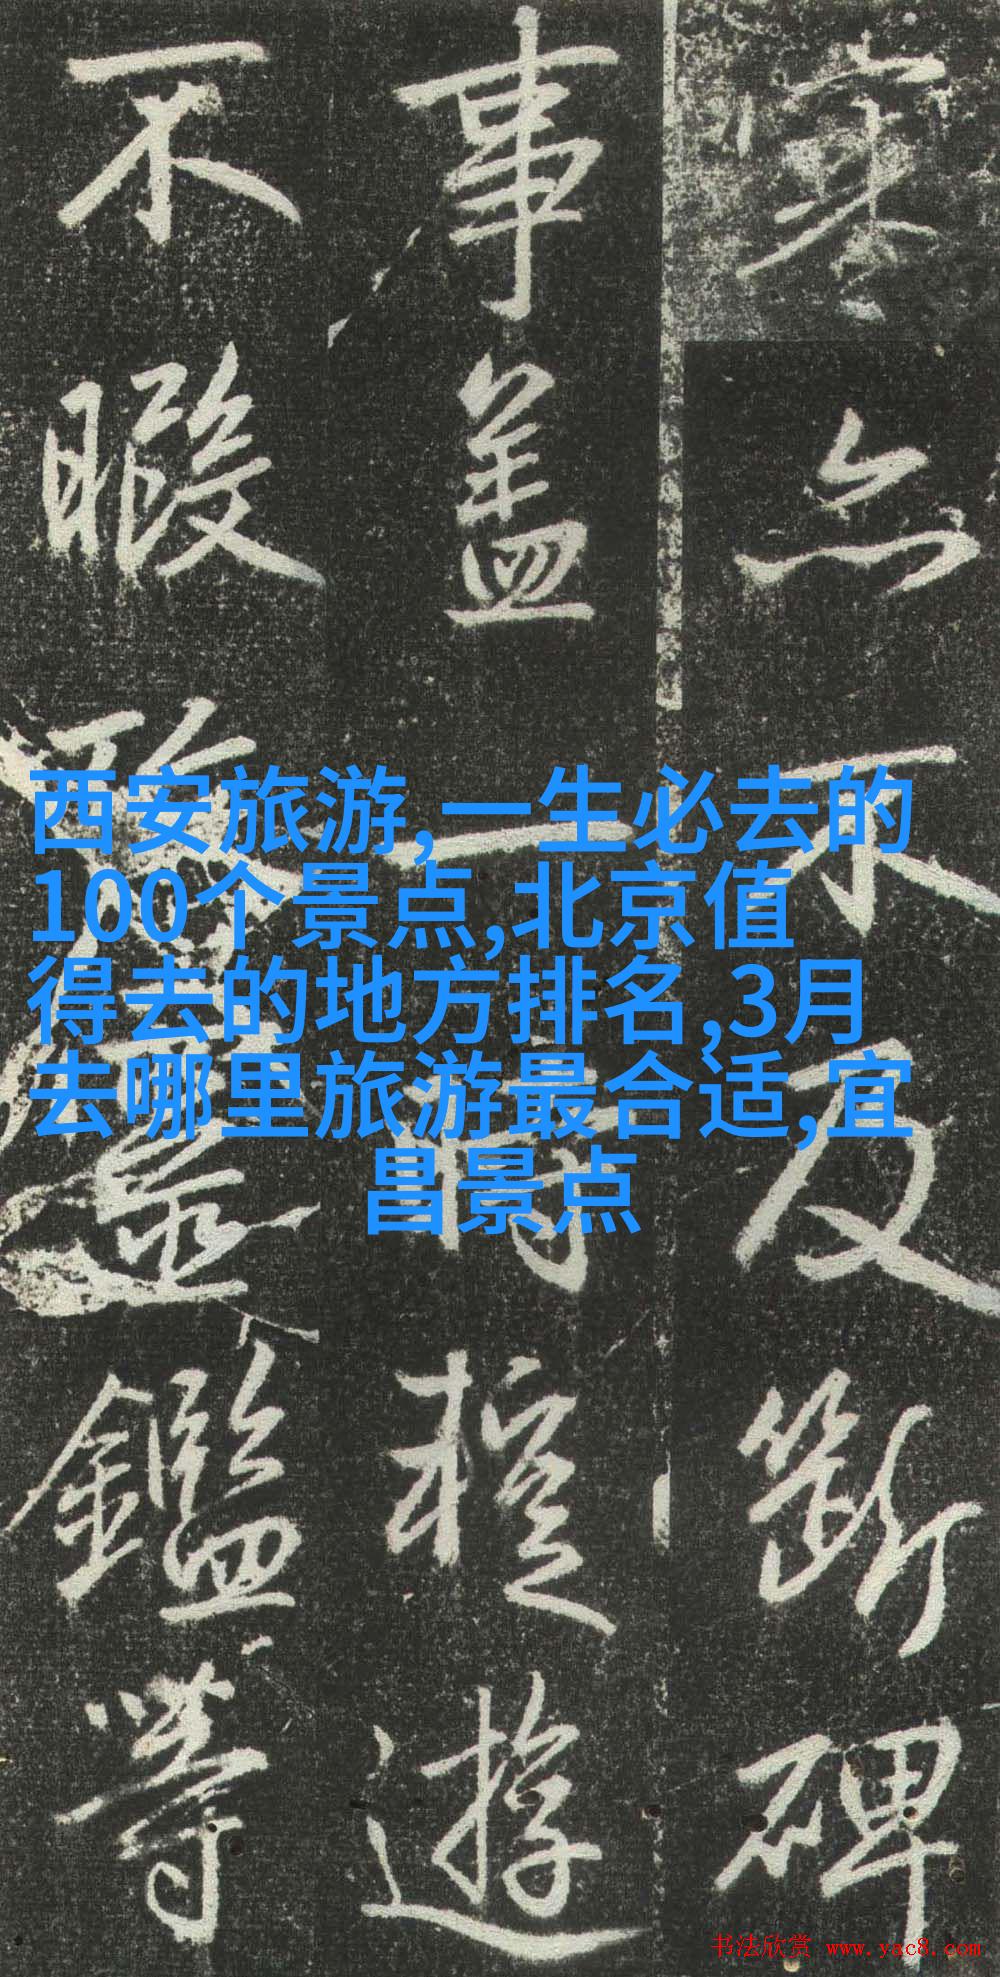 西安旅游,一生必去的
100个景点,北京值
得去的地方排名,3月
去哪里旅游最合适,宜
昌景点
亦不及断碑
事盖一遊
不暇鑑等
书法欣赏 www.yac8.com